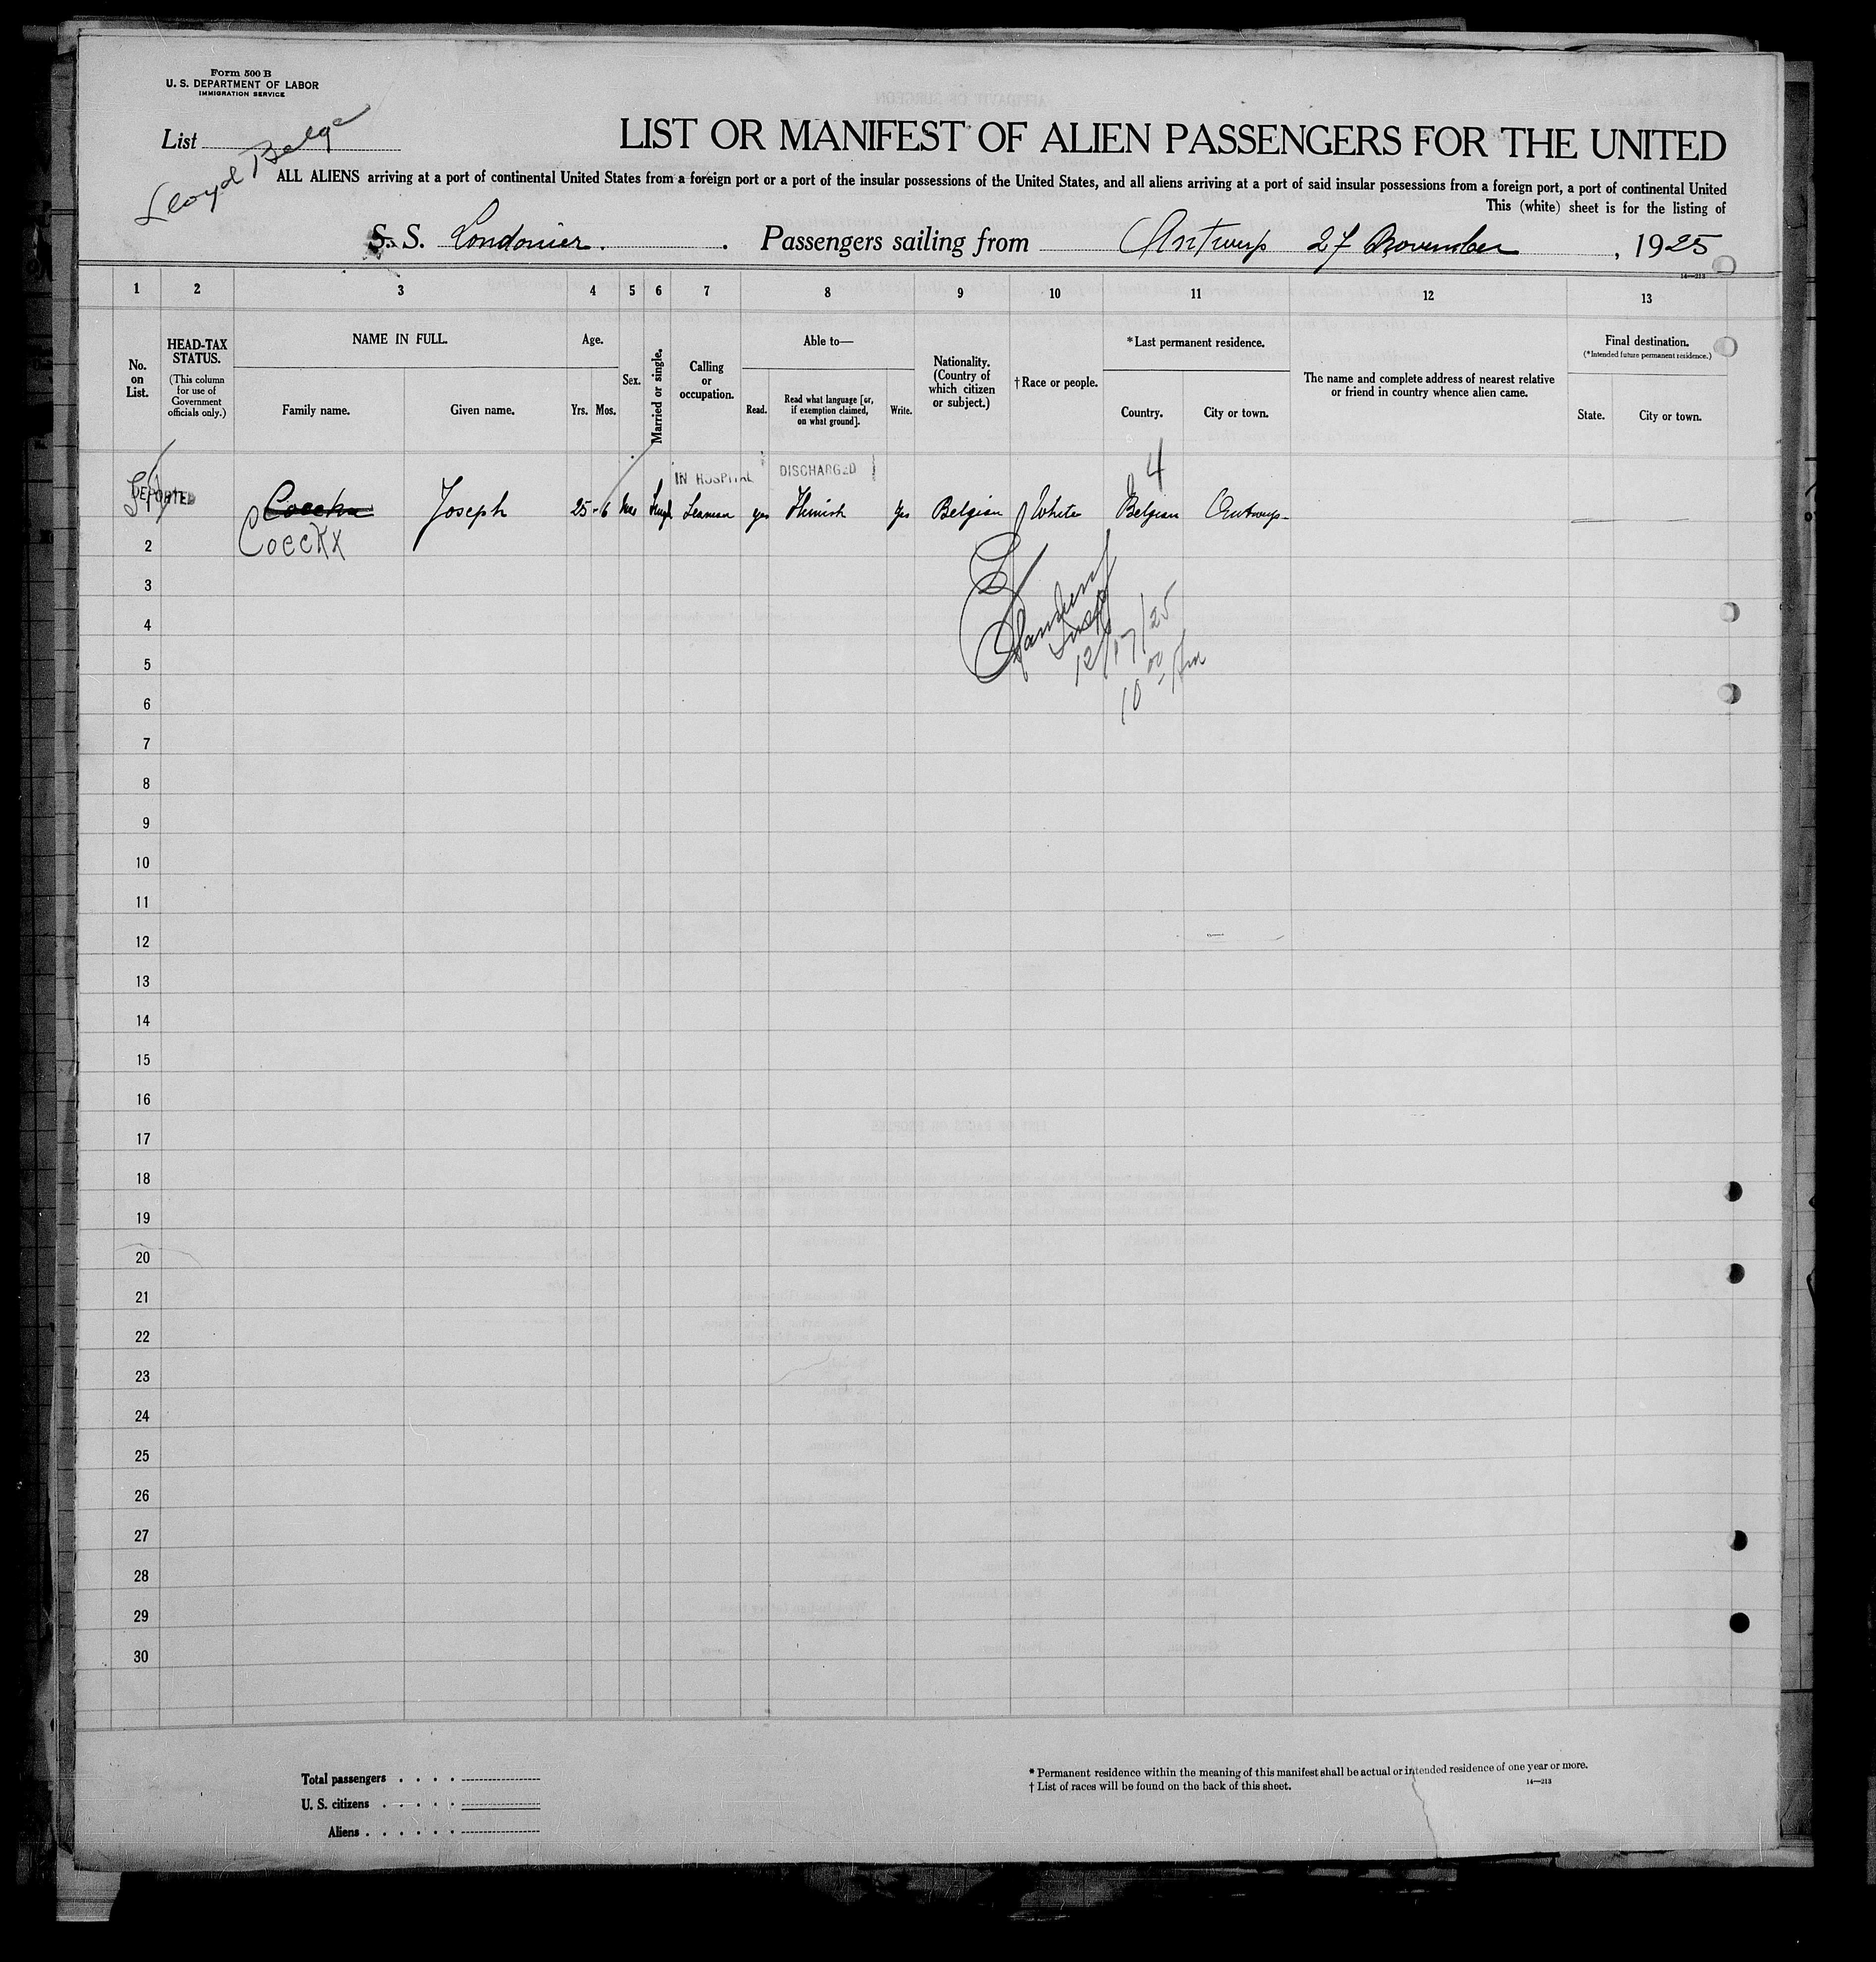 Form 500 B
U. S. DEPARTMENT OF LABOR
IMMIGRATION SERVICE
List
Lloyd Belge
LIST OR MANIFEST OF ALIEN PASSENGERS FOR THE UNITED
ALL ALIENS arriving at a port of continental United States from a foreign port or a port of the insular possessions of the United States, and all aliens arriving at a port of said insular possessions from a foreign port, a port of continental United
This (white) sheet is for the listing of
S. S. Londonier. Passengers sailing from Antwerp 27 November, 1925
14—213
1 2 3 4 5 6 7 8 9 10 11 12 13
No. on List.
HEAD-TAX STATUS.
(This column for use of Government officials only.)
NAME IN FULL.
Family name. Given name.
Age.
Yrs. Mos.
Sex.
Married or single.
Calling or occupation.
Able to—
Read. Read what language [or, if exemption claimed, on what ground]. Write.
Nationality. (Country of which citizen or subject.)
† Race or people.
*Last permanent residence.
Country. City or town.
The name and complete address of nearest relative or friend in country whence alien came.
Final destination.
(*Intended future permanent residence.)
State. City or town.
4
IN HOSPITAL DISCHARGED
DEPORTED
Joseph 25-6 Seaman yes Flemish yes Belgian White Belgian Antwerp
Coeckx
2
3
4
5
6
7
8
9
10
11
12
13
14
15
16
17
18
19
20
21
22
23
24
25
26
27
28
29
30
Insp
12/17/25
10 00 Am
Total passengers
U. S. citizens
Aliens
* Permanent residence within the meaning of this manifest shall be actual or intended residence of one year or more.
† List of races will be found on the back of this sheet.
14—213